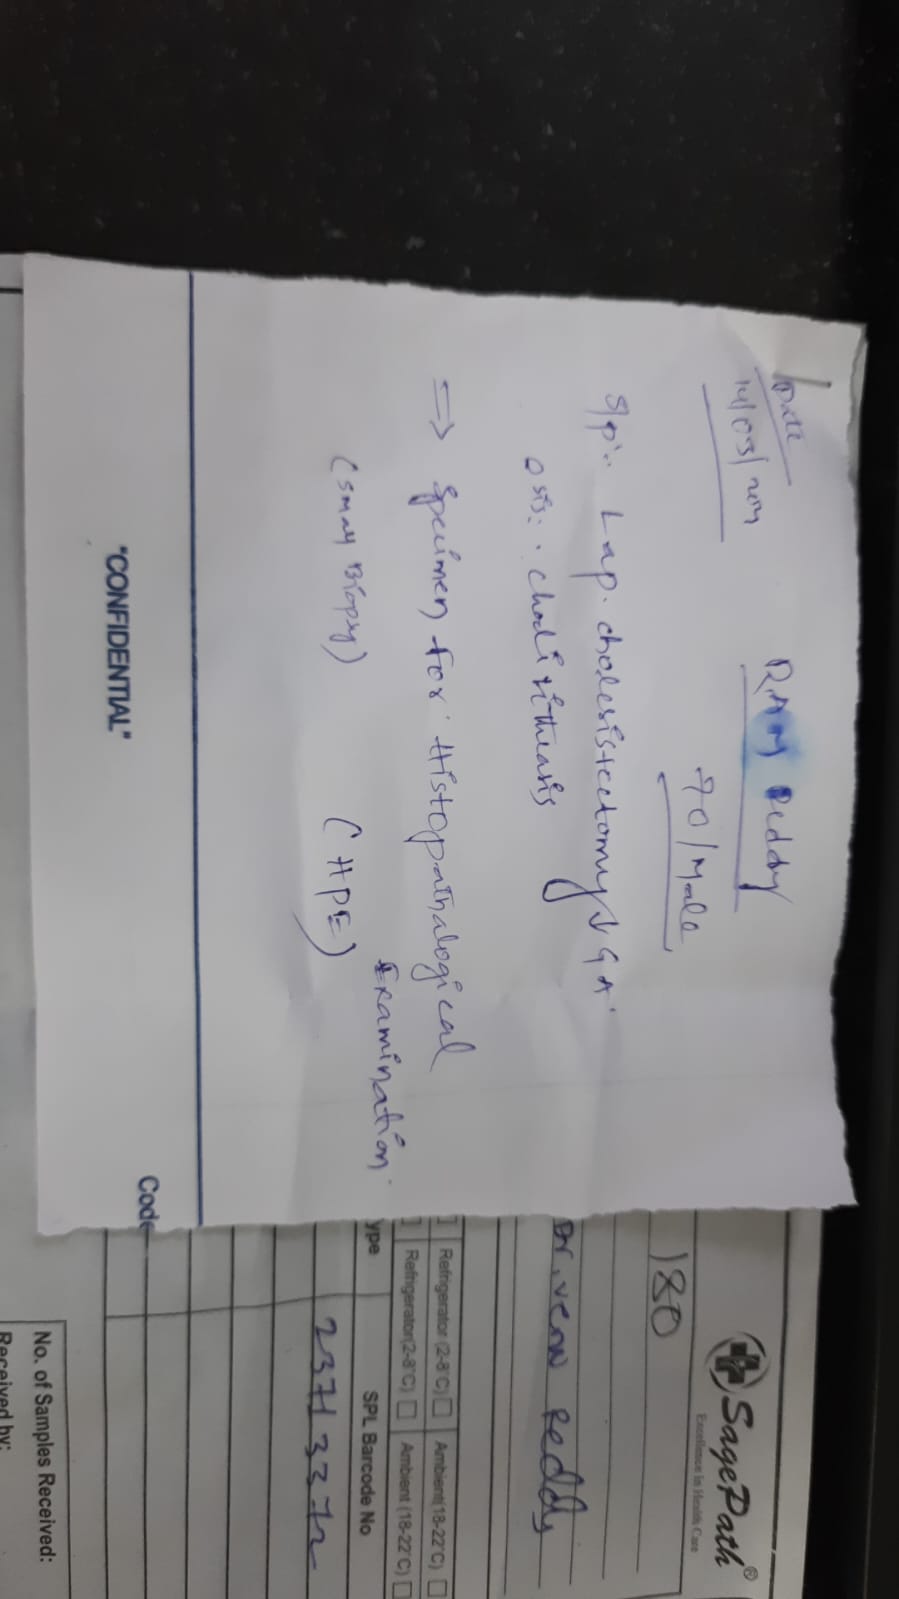 Date
14/03/2024
RAM Reddy
70/Male
S/P:- Lap. cholesistectomy ↓ GA.
Osis: . choli lithearis
⇒ specimen for Histopathalogical
Examination.
(small Biopsy) (HPE)
"CONFIDENTIAL"
Code
SagePath®
Excellence In Health Care
180
Dr. venu Reddy
Refrigerator (2-8°C) Ambient(18-22°C)
Refrigerator(2-8°C) Ambient (18-22°C)
ype SPL Barcode No
No. of Samples Received:
Received by: